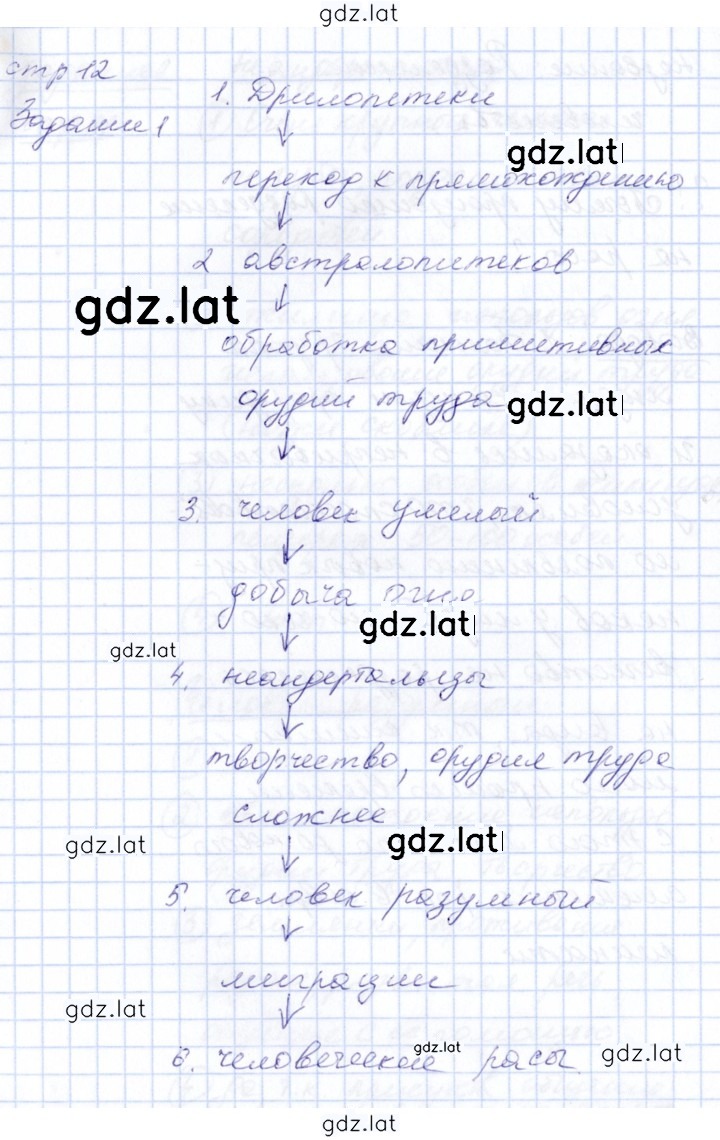 gdz.lat
стр 12
Задание 1
1. Дрилопетеки
gdz.lat
переход к прямохождению
2 австралопитеков
gdz.lat
обработка примитивных
орудий труда
gdz.lat
3. человек умелый
добыча огня
gdz.lat
gdz.lat
4. неандертальцы
творчество, орудия труда
сложнее
gdz.lat
gdz.lat
5. человек разумный
миграции
gdz.lat
gdz.lat
6. человеческие расы
gdz.lat
gdz.lat